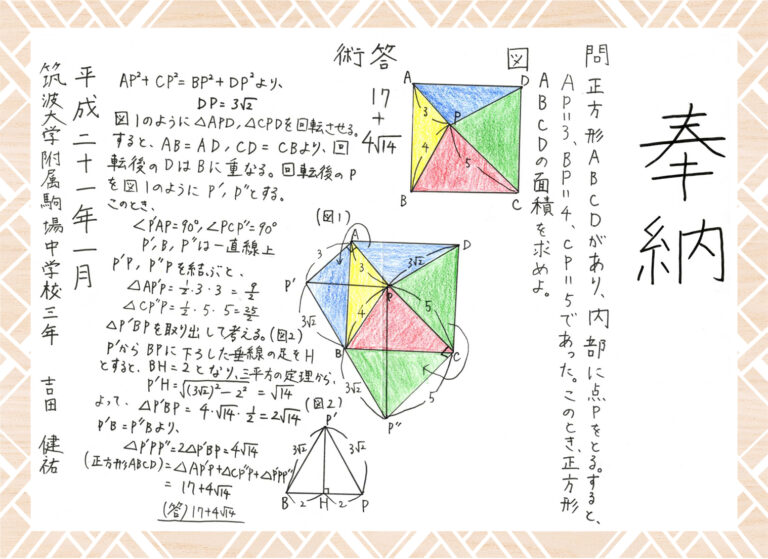 奉納
問 正方形ABCDがあり、内部に点Pをとる。すると、
AP=3、BP=4、CP=5であった。このとき、正方形
ABCDの面積を求めよ。
図
A
D
3
P
4
5
B
C
答
17+4√14
術
AP²+CP²=BP²+DP²より、
DP=3√2
図1のように△APD,△CPDを回転させる。
すると、AB=AD,CD=CBより、回
転後のDはBに重なる。回転後のP
を図1のようにP′,P″とする。
このとき、
∠P′AP=90°,∠PCP″=90°
P′,B,P″は一直線上
P′P,P″Pを結ぶと、
△AP′P=½・3・3=9/2
△CP″P=½・5・5=25/2
△P′BPを取り出して考える。(図2)
P′からBPに下ろした垂線の足をH
とすると、BH=2となり、三平方の定理から、
P′H=√((3√2)²-2²)=√14
よって、△P′BP=4・√14・½=2√14
P′B=P″Bより、
△P′PP″=2△P′BP=4√14
(正方形ABCD)=△AP′P+△CP″P+△P′PP″
=17+4√14
(答)17+4√14
(図1)
A
D
3
3
3√2
P′
P
4
5
3√2
B
C
3√2
5
P″
(図2)
P′
3√2
3√2
B
2
H
2
P
平成二十一年一月
筑波大学附属駒場中学校三年 吉田 健祐